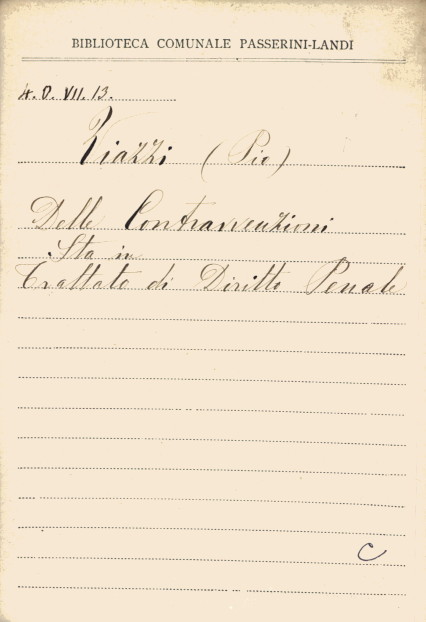 BIBLIOTECA COMUNALE PASSERINI-LANDI
4. O. VII. 13.
Viazzi (Pio)
Delle Contravvenzioni
Sta in
Trattato di Diritto Penale
C